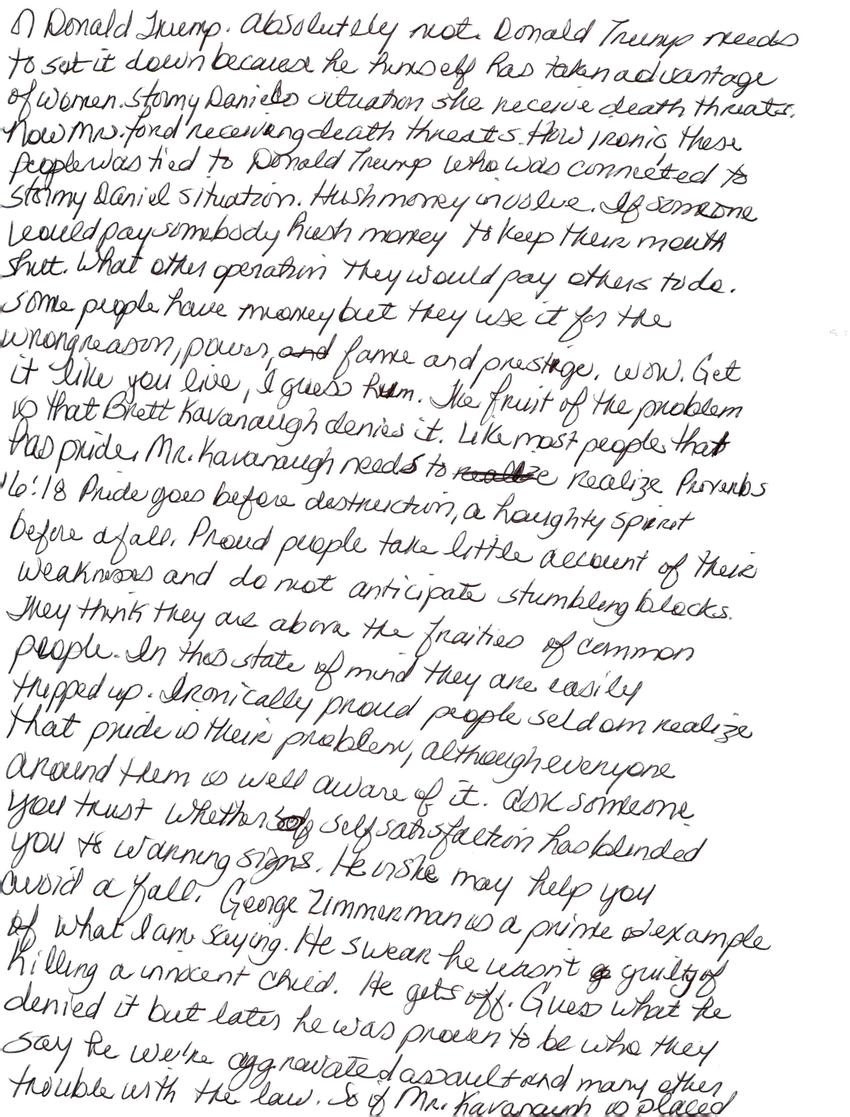 Donald Trump. Absolutely not. Donald Trump needs
to sit it down because he himself has taken advantage
of women. Stormy Daniels situation she receive death threats.
Now Mrs. Ford receiving death threats. How ironic, these
people was tied to Donald Trump who was connected to
Stormy Daniel situation. Hush money involve. If someone
would pay somebody hush money to keep their mouth
shut. What other operation they would pay others to do.
Some people have money but they use it for the
wrong reason, power, and fame and prestige. Wow. Get
it like you live, I guess hum. The fruit of the problem
is that Brett Kavanaugh denies it. Like most people that
has pride. Mr. Kavanaugh needs to realize realize Proverbs
16:18 Pride goes before destruction, a haughty spirit
before a fall. Proud people take little account of their
weaknesses and do not anticipate stumbling blocks.
They think they are above the fraities of common
people. In this state of mind they are easily
tripped up. Ironically proud people seldom realize
that pride is their problem, although everyone
around them is well aware of it. Ask someone
you trust whether self satisfaction has blinded
you to warning signs. He or she may help you
avoid a fall. George Zimmerman is a prime example
of what I am saying. He swear he wasn't guilty of
killing a innocent child. He gets off. Guess what he
denied it but later he was proven to be who they
say he we're aggravated assault and many other
trouble with the law. So if Mr. Kavanaugh is placed